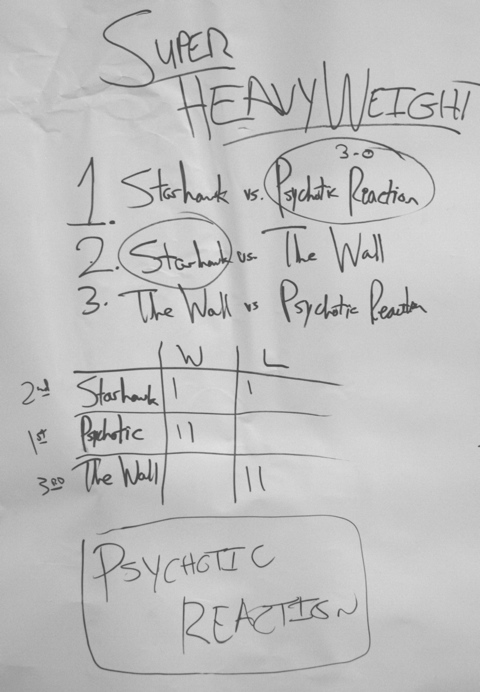 SUPER
HEAVYWEIGHT
3-0
1. Starhawk vs. Psychotic Reaction
2. Starhawk vs. The Wall
3. The Wall vs Psychotic Reaction
W L
2nd Starhawk I I
1st Psychotic II
3RD The Wall II
PSYCHOTIC
REACTION